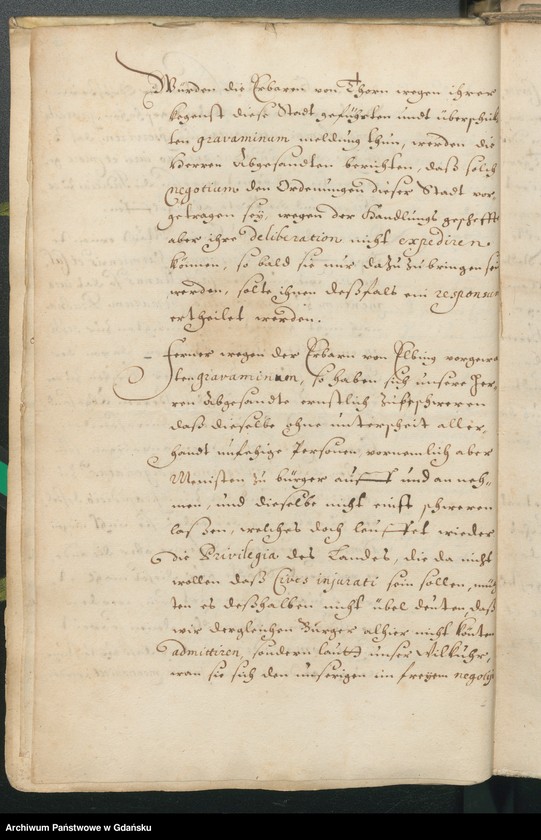 Wurden die Erbaren von Thorn wegen ihrer
kegenst diese Stadt geführten undt überschick
ten gravaminum meldung thun, werden die
Herren Abgesandten berichten, daß solch
negotium den Ordenungen dieser Stadt vor-
getragen sey, wegen der Handlungs gescheffte
aber ihre deliberation nicht expediren
können, so bald sie nur dazu zubringen sein
werden, solte ihnen deßfalt ein responsum
ertheilet werden.
Ferner wegen der Erbarn von Elbing vorgewa
ten gravaminum, so haben sich unsere Her-
ren Abgesandte ernstlich zubeschweren
daß dieselbe ohne unterscheit aller-
handt unfehige Personen, vornemlich aber
Menisten zu bürger auff und an neh-
men, und dieselbe nicht einst schweren
laßen, welches doch lauffet wieder
die Privilegia des Landes, die da nicht
wollen daß Cives injurati sein sollen,
ten es deßhalben nicht übel deuten, daß
wir dergleichen Bürger alhier nicht könten
admittiren, sondern lautt unser Wilkuhr,
wan sie sich den unserigen im freyem negotijs
Archiwum Państwowe w Gdańsku